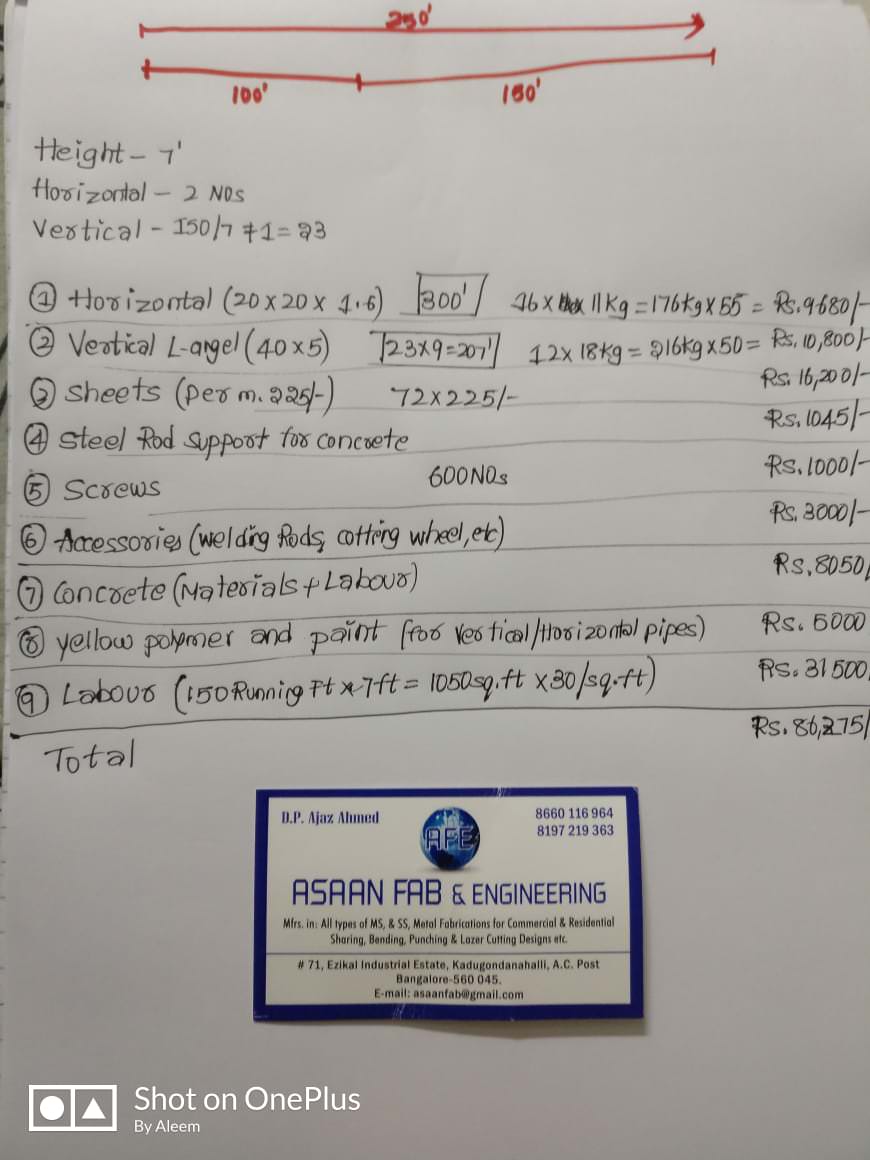 250'
100' 150'
Height - 7'
Horizontal - 2 NOs
Vertical - 150/7 +1 = 23
① Horizontal (20 x 20 x 1.6) 300' 16 x 11Kg = 176kg x 55 = Rs. 9680/-
② Vertical L-angel (40 x 5) 23x9=207' 12 x 18kg = 216kg x 50 = Rs. 10,800/-
③ Sheets (per m. 225/-) 72 x 225/- Rs. 16,200/-
④ Steel Rod support for concrete Rs. 1045/-
⑤ Screws 600 NOs Rs. 1000/-
⑥ Accessories (welding Rods, cotting wheel, etc) Rs. 3000/-
⑦ Concrete (Materials + Labour) Rs. 8050/
⑧ yellow polymer and paint (for Vertical/Horizontal pipes) Rs. 5000
⑨ Labour (150 Running Ft x 7ft = 1050sq.ft x 30/sq.ft) Rs. 31500
Total Rs. 86,275/
D.P. Ajaz Ahmed
8660 116 964
8197 219 363
AFE
ASAAN FAB & ENGINEERING
Mfrs. in: All types of MS, & SS, Metal Fabrications for Commercial & Residential
Sharing, Bending, Punching & Lazer Cutting Designs etc.
# 71, Ezikal Industrial Estate, Kadugondanahalli, A.C. Post
Bangalore-560 045.
E-mail: asaanfab@gmail.com
Shot on OnePlus
By Aleem